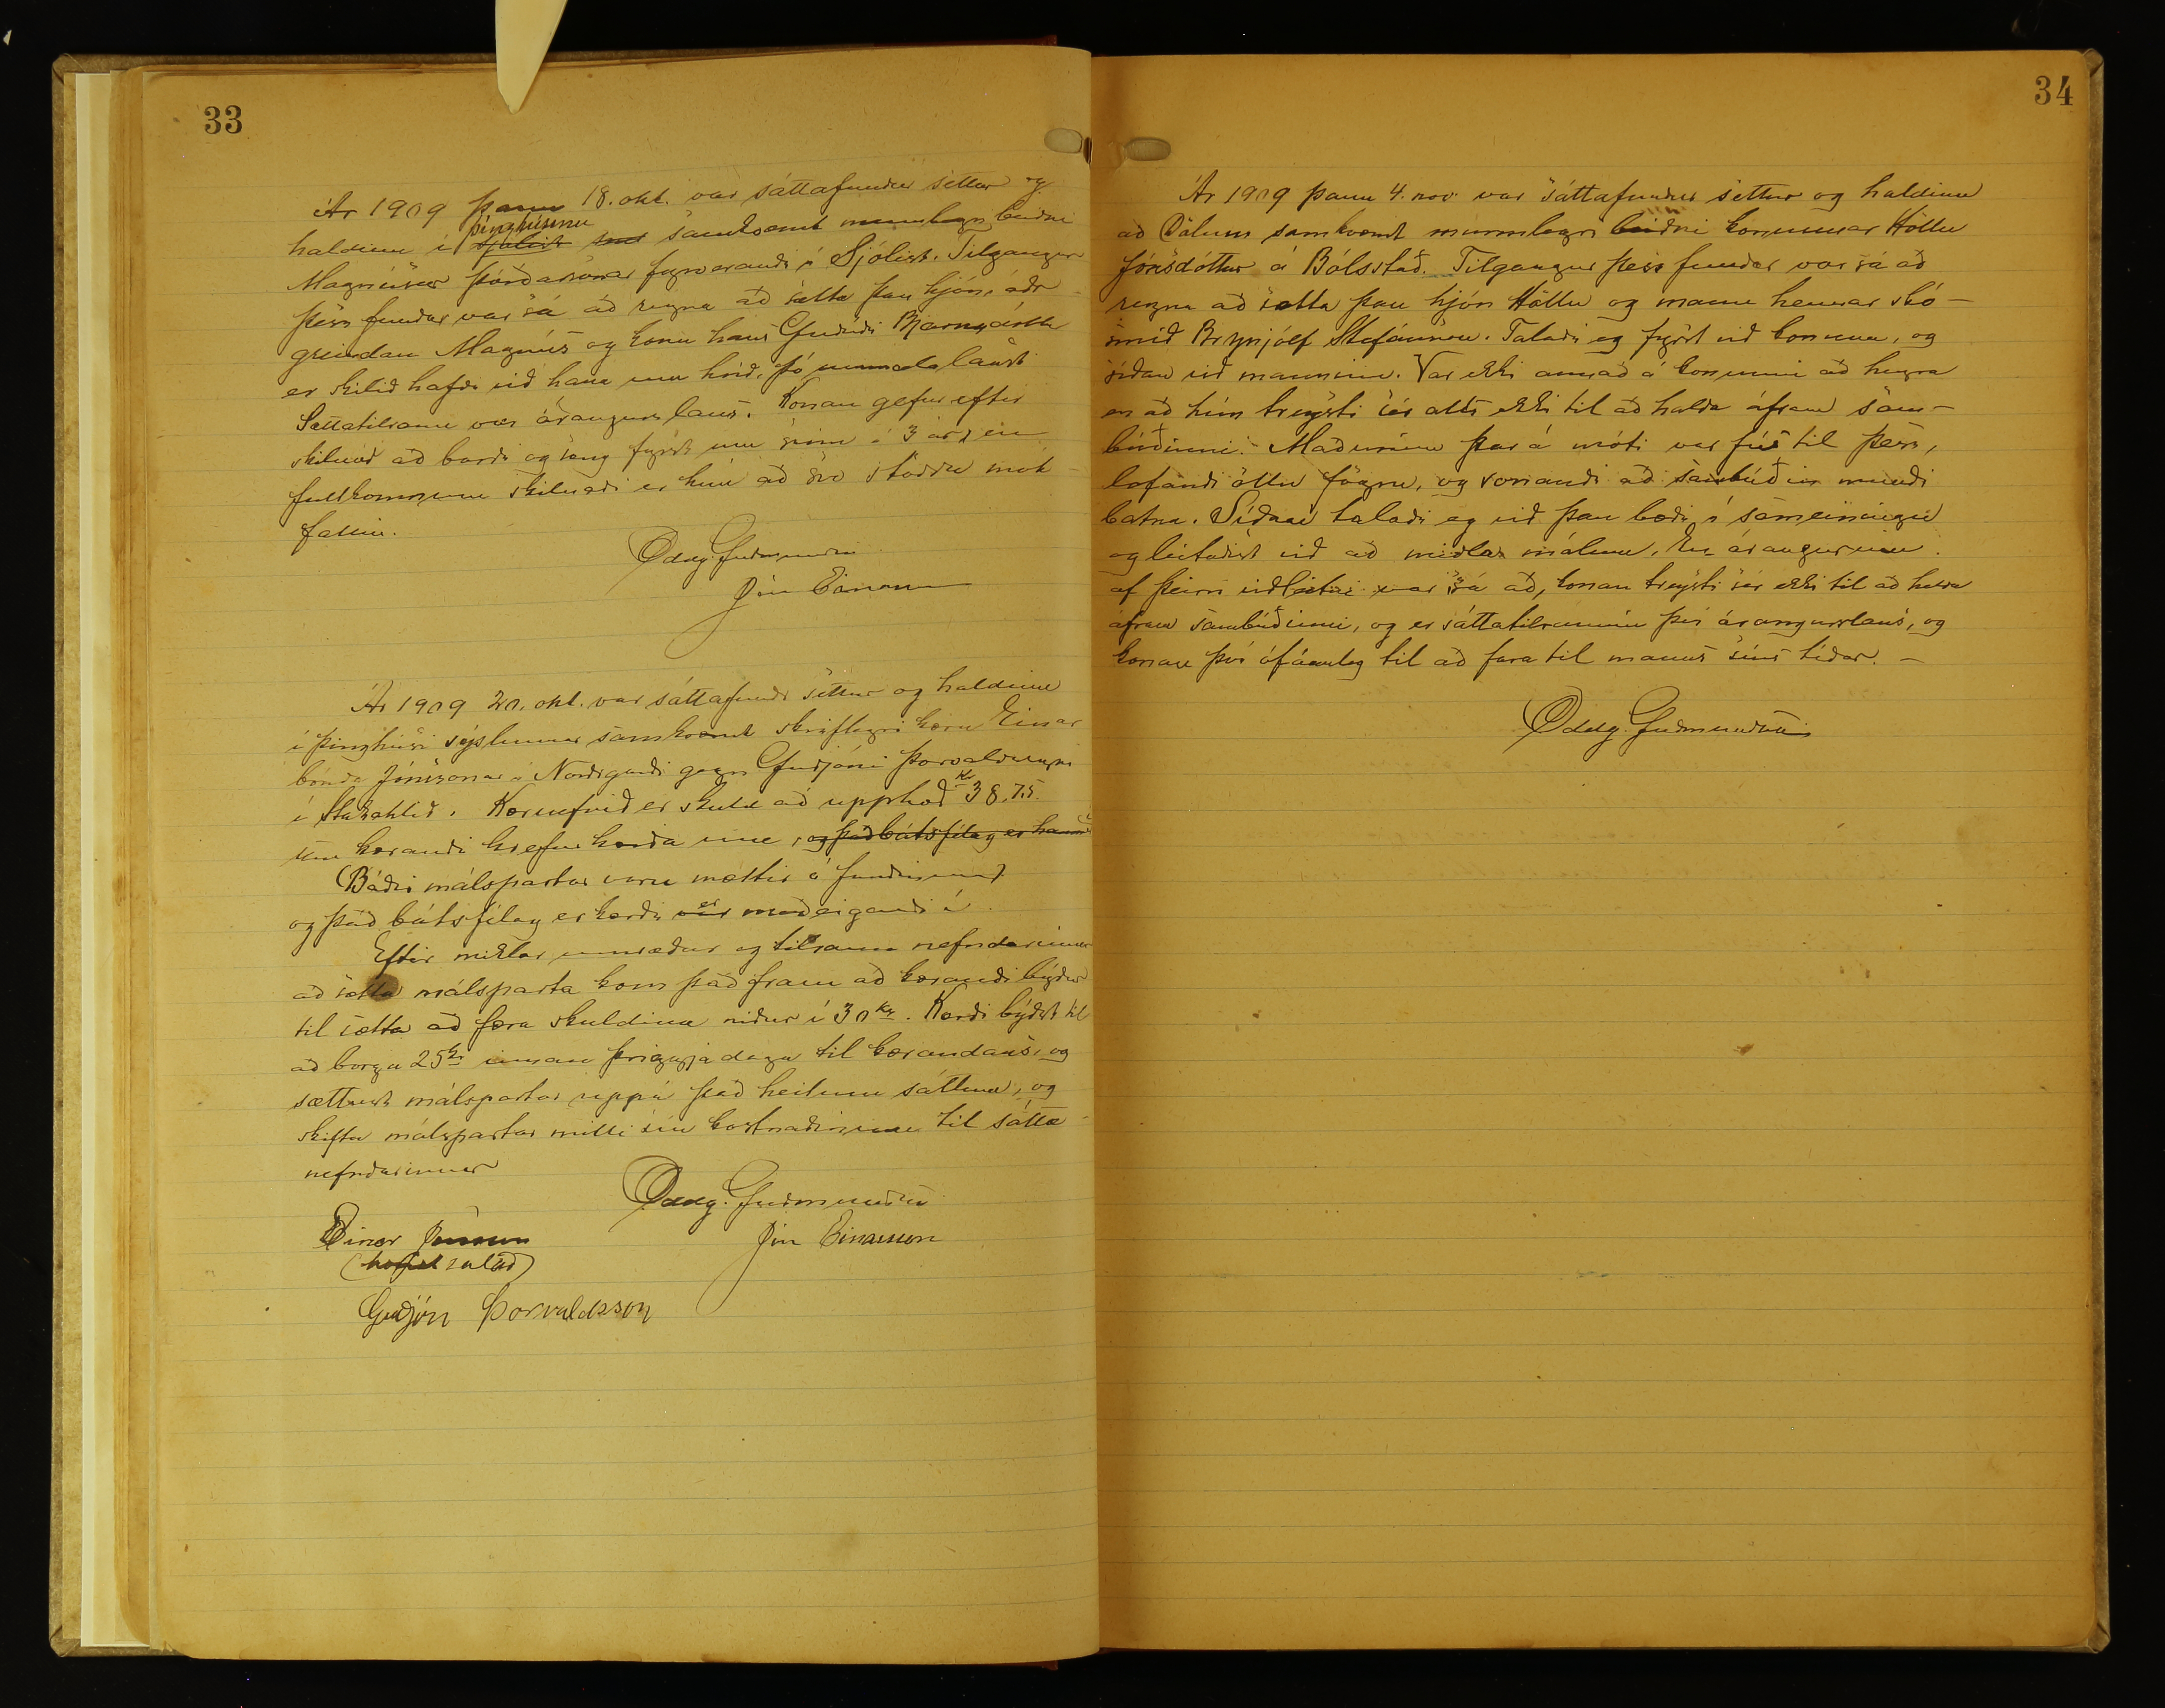 33
Ár 1909 þann 18. okt. var sáttafundur settur og
haldinn í þinghúsinu samkvæmt munnlegri beiðni
Magnúsar Þórðarsonar fyrverandi í Sjólist. Tilgangur
þess fundar var sá að reyna að sætta þau hjón, áðr-
greindan Magnús og konu hans Guðríði Bjarnadóttur
er skilið hafði við hann um hríð,
Sáttatilraun var árangurslaus. Konan gefur eftir
skilnað að borði og sæng fyrst um sinn í 3 ár, en
fullkomnum skilnaði er hún að svo stöddu mót-
fallin.
Oddg. Guðmundsen
Jón Einarsson
Ár 1909 20. okt. var sáttafundr settur og haldinn
í þinghúsi sýslunnar samkvæmt skriflegri kæru Einars
bónda Jónssonar á Norðrgarði gegn Guðjóni Þorvaldssyni
í Stakahlíð. Kæruefnið er skuld að upphæð Kr 38,75.
sem kærandi krefur kærða um, og það bátsfélag er hann
Báðir málspartar voru mættir á fundinum
og það bátsfélag er kærði er meðeigandi í.
Eftir miklar umræður og tilraun nefndarinnar
að sætta málsparta kom það fram að kærandi býður
til sætta að færa skuldina niður í 30 kr. Kærði býðst til
að borga 25 kr innan þriggja daga til kærandans, og
sættust málspartar uppá það heilum sáttum, og
skifta málspartar milli sín kostnaðinum til sátta-
nefndarinnar
Oddg. Guðmundsen
Einar Jónsson
Jón Einarsson
(handsalað)
Guðjón Þorvaldsson
34
Ár 1909 þann 4. nóv. var sáttafundur settur og haldinn
að Dölum samkvæmt munnlegri beiðni konunnar Höllu
Jónsdóttur á Bólstað. Tilgangur þess fundar var sá að
reyna að sætta þau hjón Höllu og mann hennar skó-
smið Brynjólf Stefánsson. Talaði eg fyrst við konuna, og
síðan við manninn. Var ekki annað á konunni að heyra
en að hún treysti sér alls ekki til að halda áfram sam-
búðinni. Maðurinn þar á móti var fús til þess,
lofandi öllu fögru, og vonandi að sambúðin mundi
batna. Síðan talaði eg við þau bæði í sameiningu
og leitaðist við að miðla málum, en árangurinn
af þeirri viðleitni var sá að, konan treysti sér ekki til að halda
áfram sambúðinni, og er sáttatilraunin því árangurslaus, og
konan því ófáanleg til að fara til manns síns tíðar. -
Oddg. Guðmundsen